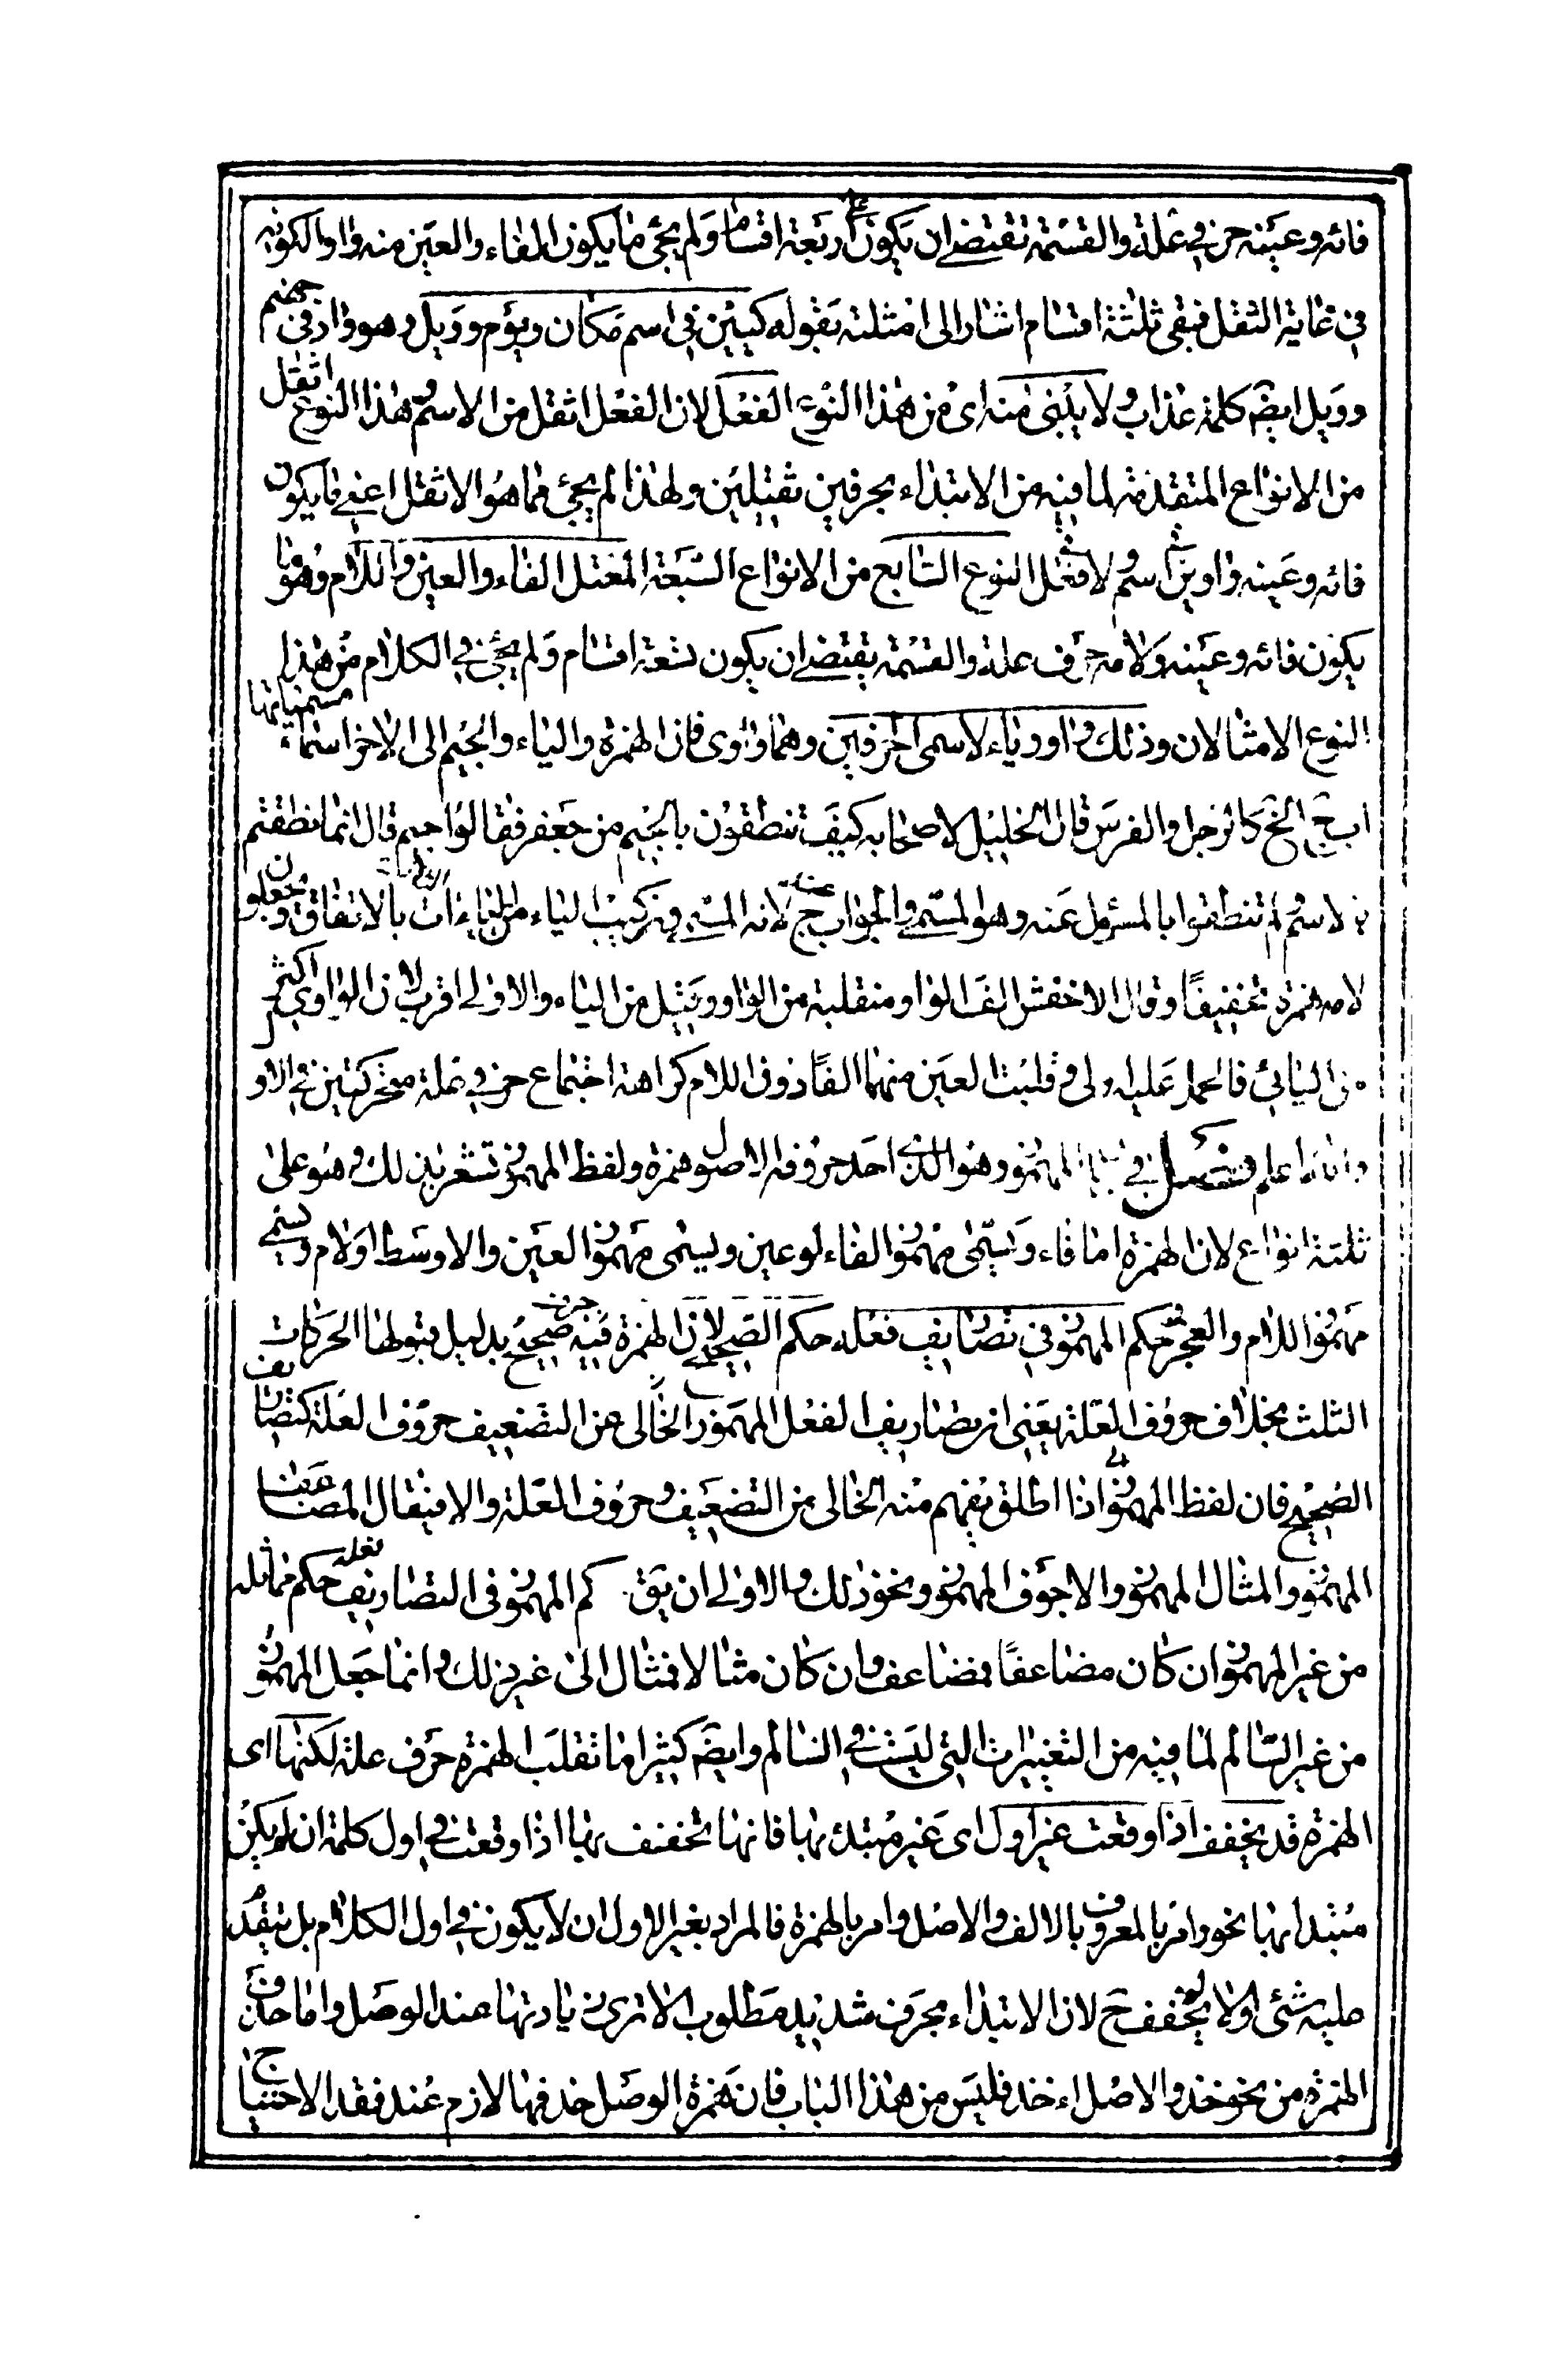 فائه وعينه حرفى علة والقسمة تقتضى ان يكون اربعة اقسام ولم يجئ ما يكون الفاء والعين منه واوا لكونه
فى غاية الثقل فبقى ثلثة اقسام اشار الى امثلته بقوله كيين فى اسم مكان ويوم وويل وهو واد فى جهنم
وويل ايضه كلمة عذاب ولا يبنى منه اى من هذا النوع الفعل لان الفعل اثقل من الاسم وهذا النوع اثقل
من الانواع المتقدمة لما فيه من الابتداء بحرفين ثقيلين ولهذا لم يجئ فما هو الاثقل اعنى ما يكون
فائه وعينه واوين اسم لا فعل النوع السابع من الانواع السبعة المعتل الفاء والعين واللام وهو ما
يكون فائه وعينه ولامه حرف علة والقسمة يقتضى ان يكون تسعة اقسام ولم يجئ فى الكلام من هذا
النوع الا مثالان وذلك واو وياء لاسمى الحرفين وهما و و ى فان الهمزة والياء والجيم الى الاخر اسماء مسمياتها
اب ج الخ كالرجل والفرس قال الخليل لاصحابه كيف تنطقون بالجيم من جعفر فقالوا جيم قال انما نطقتم
بالاسم لم تنطقوا بالمسئول عنه وهو المسمى والجواب عنه ج لانه المسمى وتركيب الياء من الياءات بالاتفاق ويجعلون
لامه همزة تخفيفا وقال الاخفش الف الواو منقلبة من الواو وقيل من الياء والاولى اقرب لان الواوى اكثر
من اليائى فالحمل عليه اولى وقلبت العين منهما الفا دون اللام كراهة اجتماع حرفى علة متحركتين فى الاول
والله اعلم فصل فى بيان المهموز وهو الذى احد حروفه الاصول همزة ولفظ المهموز تشعر بذلك وهو على
ثلثة انواع لان الهمزة اما فاء ويسمى مهموز الفاء او عين ويسمى مهموز العين والاوسط او لام ويسمى
مهموز اللام والعجز وحكم المهموز فى تصاريف فعله حكم الصحيح لان الهمزة فيه حرف صحيح بدليل قبولها الحركات
الثلث بخلاف حروف العلة يعنى ان تصاريف الفعل المهموز الخالى عن التضعيف وحروف العلة كتصاريف
الصحيح فان لفظ المهموز اذا اطلق يفهم منه الخالى من التضعيف وحروف العلة والا فيقال المضاعف
المهموز والمثال المهموز والاجوف المهموز ونحو ذلك والاولى ان يق حكم المهموز فى التصاريف فعله حكم مماثله
من غير المهموز ان كان مضاعفا فمضاعف وان كان مثالا فمثال الى غير ذلك وانما جعل المهموز
من غير السالم لما فيه من التغييرات التى ليست فى السالم وايضه كثيرا ما تقلب الهمزة حرف علة لكنها اى
الهمزة قد يخفف اذا وقعت غير اول اى غير مبتدئ بها فانها تخفف بها اذا وقعت فى اول كلمة ان لم يكن
مبتدا بها نحو وامر بالمعروف بالالف والاصل وامر بالهمزة فالمراد بغير الاول ان لا يكون فى اول الكلام بل يتقدم
عليه شئ اولا يخفف ح لان الابتداء بحرف شديد مطلوب الا ترى زيادتها عند الوصل واما حذف
الهمزة من نحو خذ والاصل اءخذ فليس من هذا الباب فان همزة الوصل حذفها لازم عند فقد الاحتياج